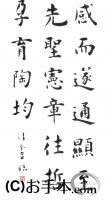 感而遂通顯至
先聖憲章往哲
孕育陶均
(C)お手本.com